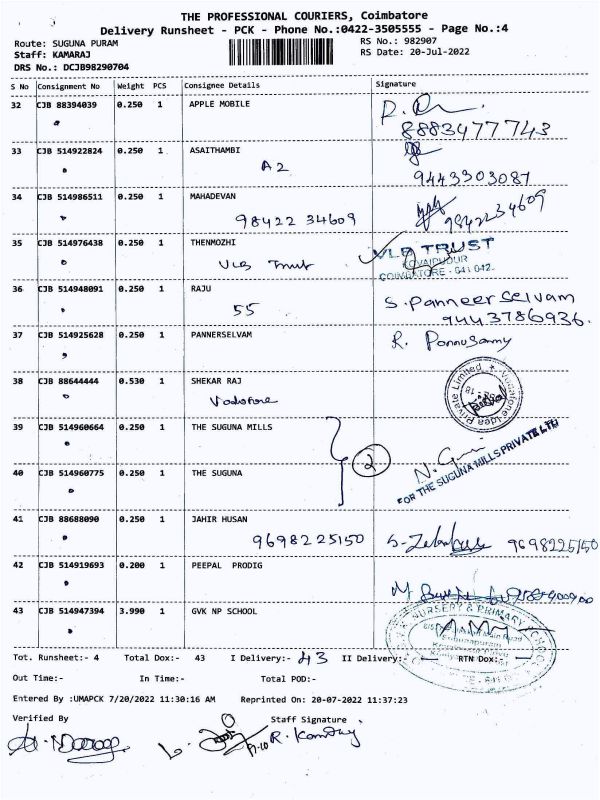 THE PROFESSIONAL COURIERS, Coimbatore
Delivery Runsheet - PCK - Phone No.:0422-3505555 - Page No.:4
Route: SUGUNA PURAM
RS No.: 982907
Staff: KAMARAJ
RS Date: 20-Jul-2022
DRS No.: DCJB98290704
S No Consignment No Weight PCS Consignee Details Signature
32 CJB 88394039 0.250 1 APPLE MOBILE
8883477743
33 CJB 514922824 0.250 1 ASAITHAMBI
A2
9443303087
34 CJB 514986511 0.250 1 MAHADEVAN
98422 34609 9842234609
35 CJB 514976438 0.250 1 THENMOZHI
VLB Trust
VLB TRUST
KOVAIPUDUR
COIMBATORE - 641 042.
36 CJB 514948091 0.250 1 RAJU
55
S. Panneer Selvam
9443786936.
37 CJB 514925628 0.250 1 PANNERSELVAM
R. Ponnusamy
38 CJB 88644444 0.530 1 SHEKAR RAJ
Vodafone
Vodafone Idea Private Limited
39 CJB 514960664 0.250 1 THE SUGUNA MILLS
2
40 CJB 514960775 0.250 1 THE SUGUNA
FOR THE SUGUNA MILLS PRIVATE LTD
41 CJB 88688090 0.250 1 JAHIR HUSAN
9698225150 9698225150
42 CJB 514919693 0.200 1 PEEPAL PRODIG
43 CJB 514947394 3.990 1 GVK NP SCHOOL
NURSERY & PRIMARY
Tot. Runsheet:- 4 Total Dox:- 43 I Delivery:- 43 II Delivery:- RTN Dox:-
Out Time:- In Time:- Total POD:-
Entered By :UMAPCK 7/20/2022 11:30:16 AM Reprinted On: 20-07-2022 11:37:23
Verified By Staff Signature